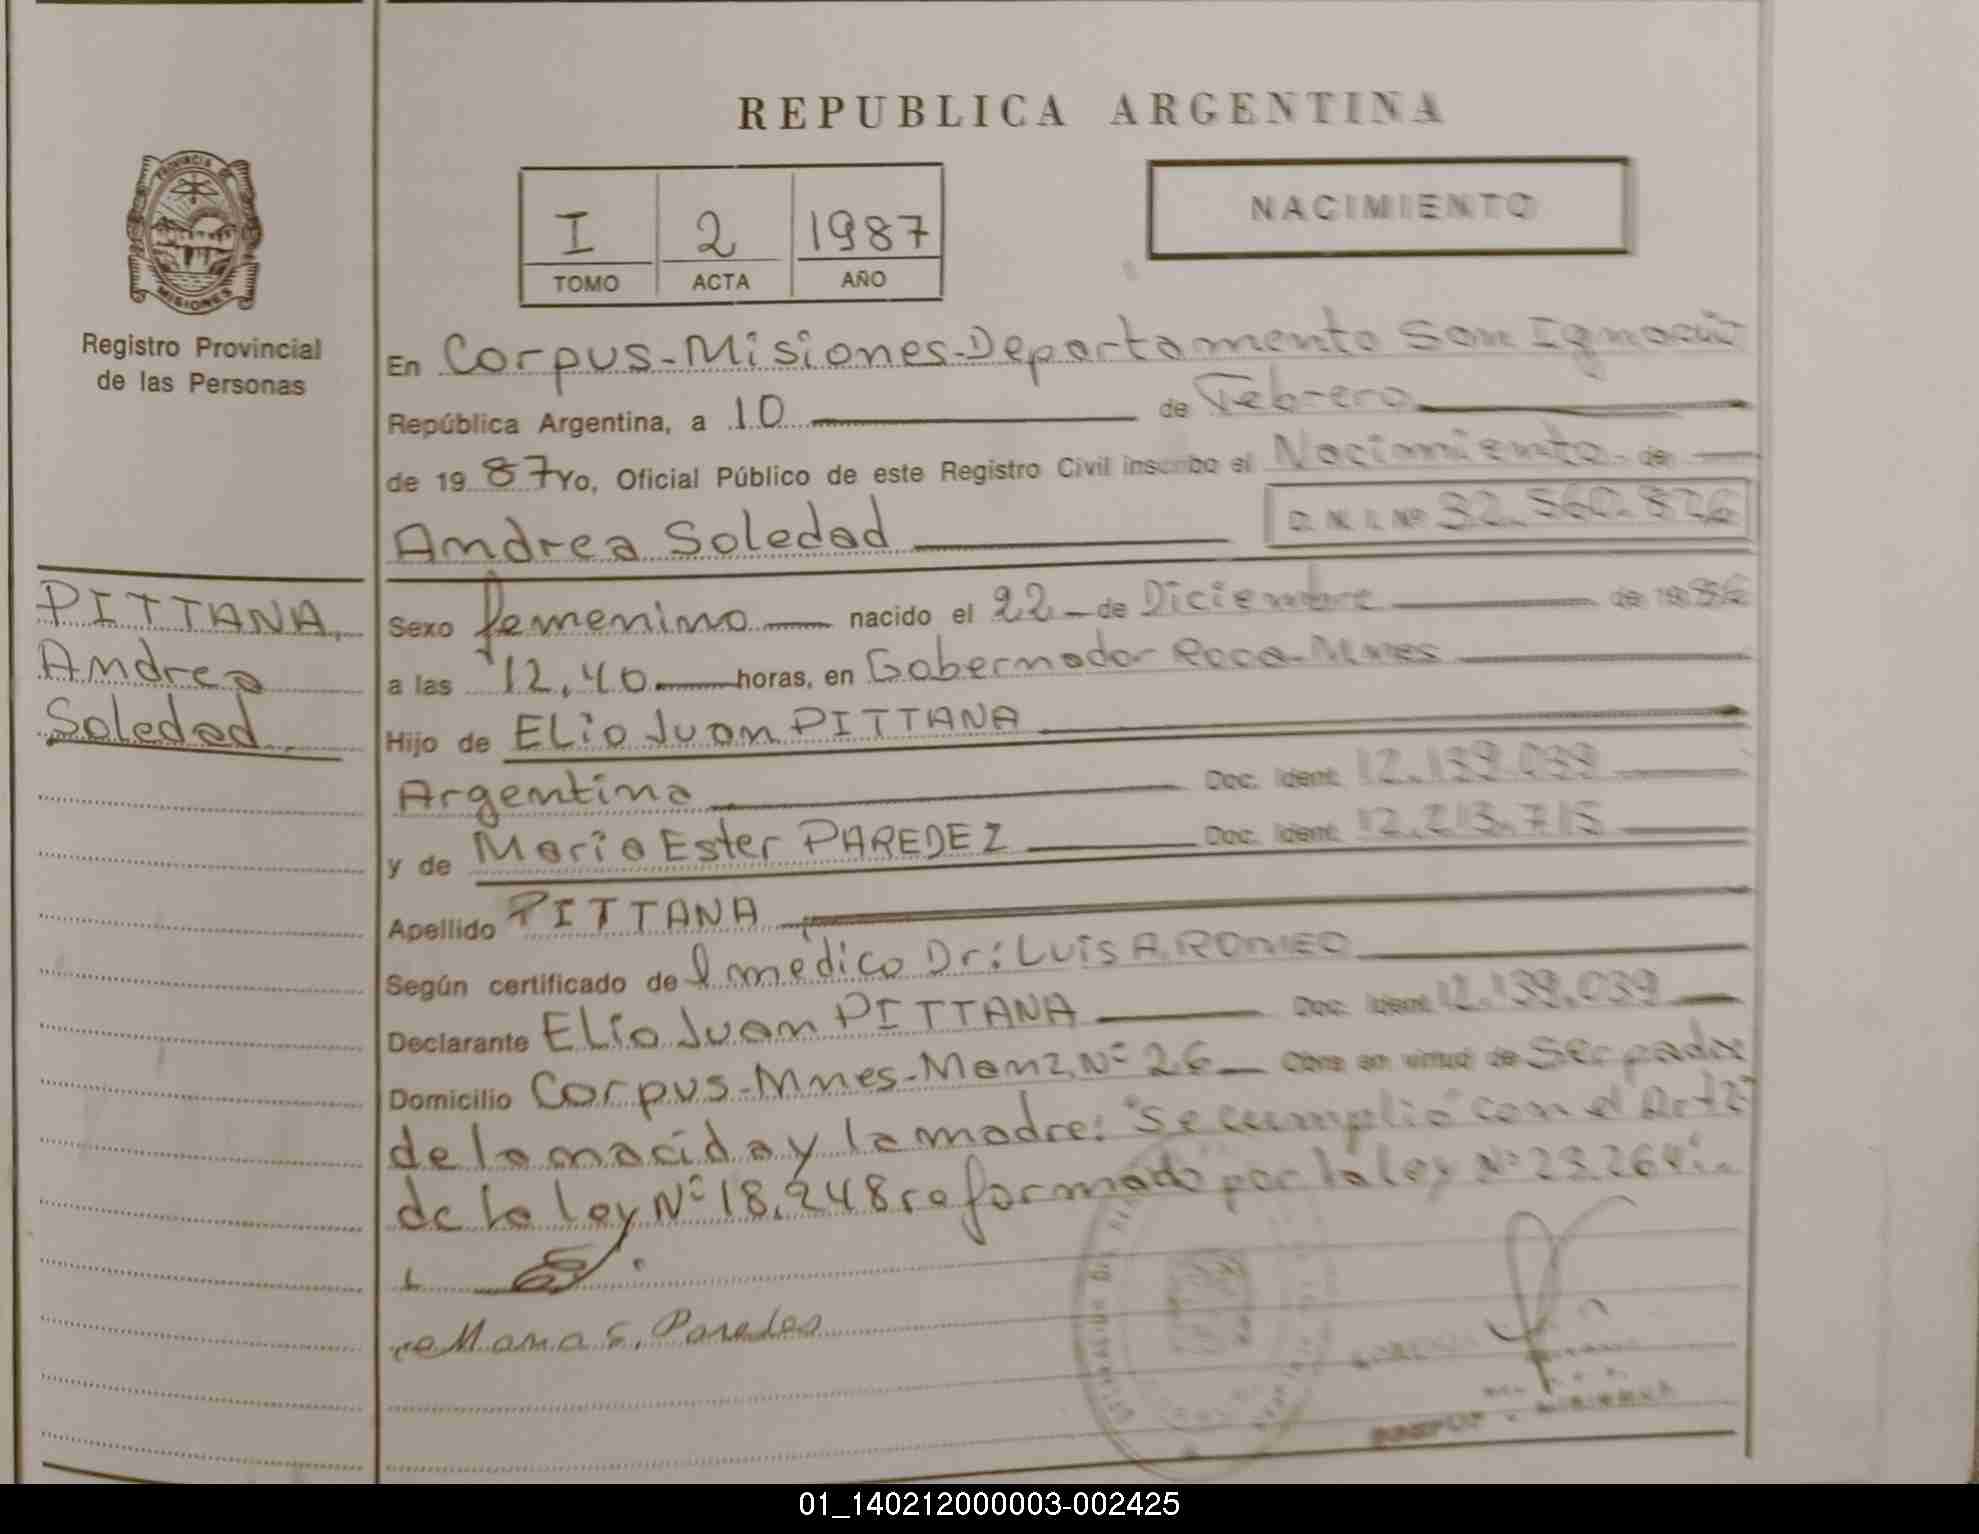 REPUBLICA ARGENTINA
PROVINCIA
MISIONES
Registro Provincial
de las Personas
I 2 1987
TOMO ACTA AÑO
NACIMIENTO
En Corpus-Misiones-Departamento San Ignacio
República Argentina, a 10 de Febrero
de 1987 Yo, Oficial Público de este Registro Civil inscribo el Nacimiento de
Andrea Soledad D.N.I. Nº 32.560.826
PITTANA,
Andrea
Soledad
Sexo femenino nacido el 22 de Diciembre de 1986
a las 12,40 horas, en Gobernador Roca-Mnes
Hijo de ELio Juan PITTANA
Argentina Doc. Ident. 12.139.039
y de Maria Ester PAREDEZ Doc. Ident. 12.213.715
Apellido PITTANA
Según certificado del médico Dr: LUIS A. ROMEO
Declarante ELio Juan PITTANA Doc. Ident. 12.139.039
Domicilio Corpus-Mnes-Manz. Nº 26 Obra en virtud de Ser padre
de la nacida y la madre: "Se cumplió con el Art 2º
de la ley Nº 18.248 reformado por la ley Nº 23.264"
Maria E. Paredes
CORPUS - MISIONES
01_140212000003-002425